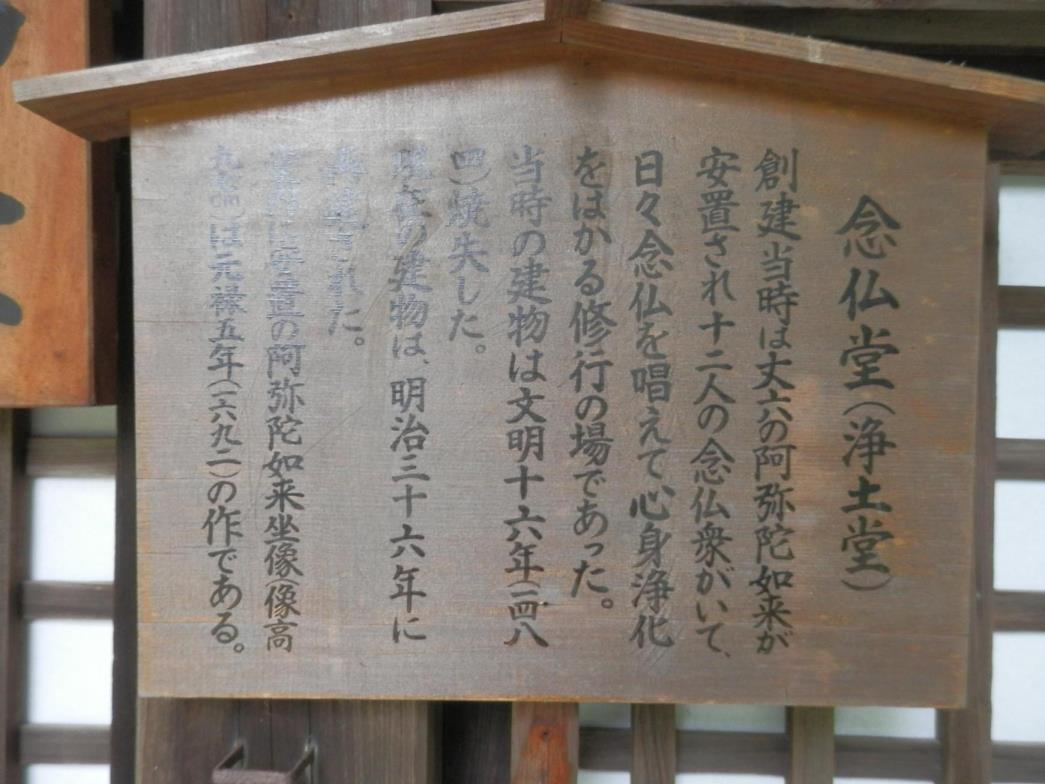 念仏堂(浄土堂)
創建当時は丈六の阿弥陀如来が
安置され十二人の念仏衆がいて、
日々念仏を唱えて心身浄化
をはかる修行の場であった。
当時の建物は文明十六年(一四八
四)焼失した。
現在の建物は、明治三十六年に
再建された。
安置の阿弥陀如来坐像(像高
cm)は元禄五年(一六九二)の作である。